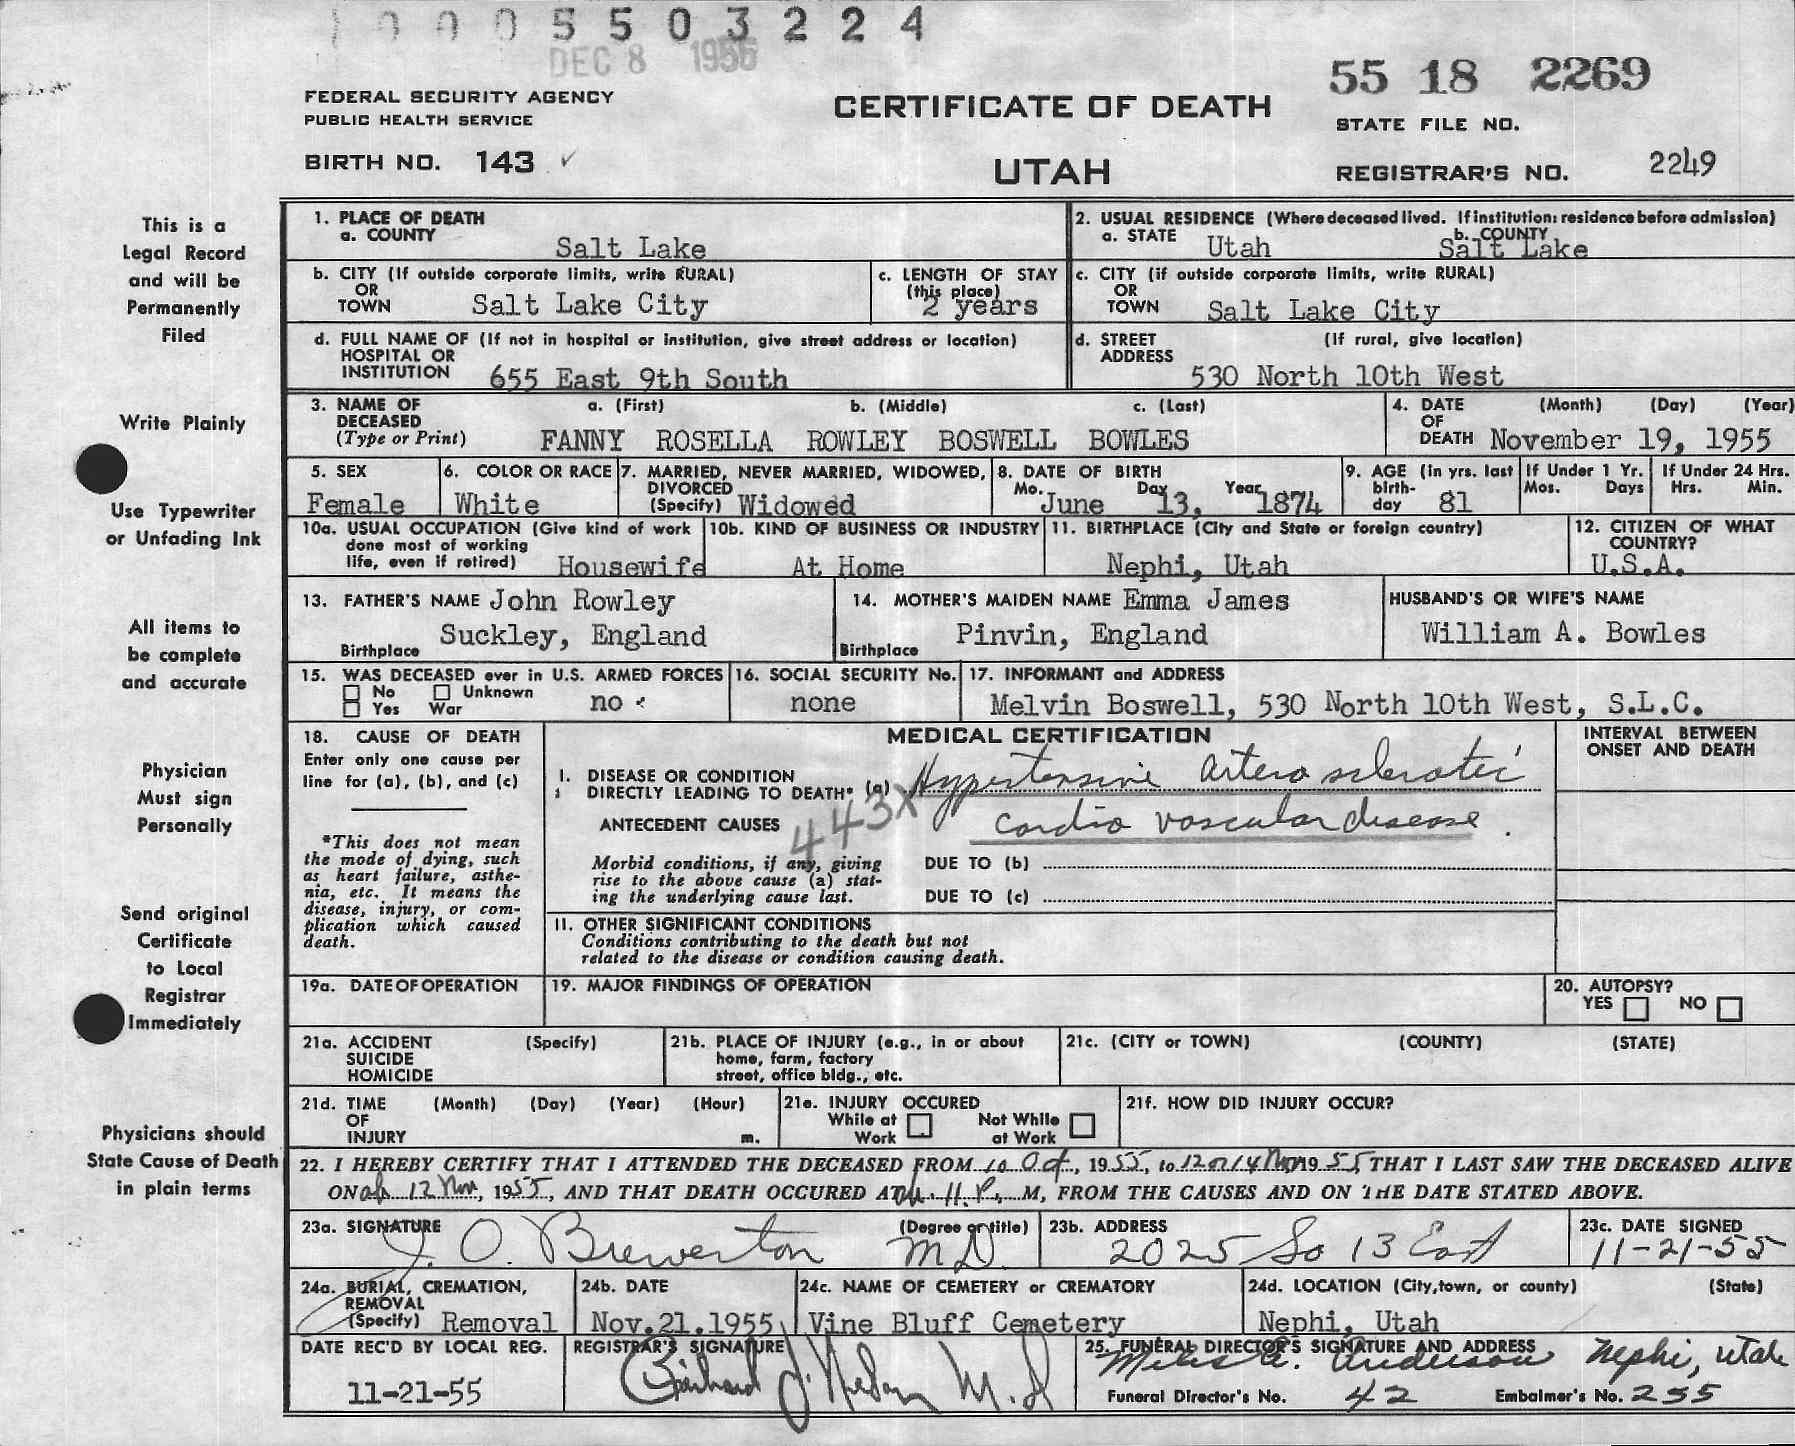 0 0 0 5 5 0 3 2 2 4
DEC 8 1955
55 18 2269
FEDERAL SECURITY AGENCY
PUBLIC HEALTH SERVICE
CERTIFICATE OF DEATH
STATE FILE NO.
BIRTH NO. 143 ✓
UTAH
REGISTRAR'S NO. 2249
This is a
Legal Record
and will be
Permanently
Filed
Write Plainly
Use Typewriter
or Unfading Ink
All items to
be complete
and accurate
Physician
Must sign
Personally
Send original
Certificate
to Local
Registrar
Immediately
Physicians should
State Cause of Death
in plain terms
1. PLACE OF DEATH
a. COUNTY Salt Lake
2. USUAL RESIDENCE (Where deceased lived. If institution: residence before admission)
a. STATE Utah b. COUNTY Salt Lake
b. CITY (If outside corporate limits, write RURAL)
OR
TOWN Salt Lake City
c. LENGTH OF STAY
(this place)
2 years
c. CITY (if outside corporate limits, write RURAL)
OR
TOWN Salt Lake City
d. FULL NAME OF (If not in hospital or institution, give street address or location)
HOSPITAL OR
INSTITUTION 655 East 9th South
d. STREET (If rural, give location)
ADDRESS
530 North 10th West
3. NAME OF a. (First) b. (Middle) c. (Last)
DECEASED
(Type or Print) FANNY ROSELLA ROWLEY BOSWELL BOWLES
4. DATE (Month) (Day) (Year)
OF
DEATH November 19, 1955
5. SEX
Female
6. COLOR OR RACE
White
7. MARRIED, NEVER MARRIED, WIDOWED,
DIVORCED
(Specify) Widowed
8. DATE OF BIRTH
Mo. Day Year
June 13, 1874
9. AGE (In yrs. last
birth-
day 81
If Under 1 Yr.
Mos. Days
If Under 24 Hrs.
Hrs. Min.
10a. USUAL OCCUPATION (Give kind of work
done most of working
life, even if retired) Housewife
10b. KIND OF BUSINESS OR INDUSTRY
At Home
11. BIRTHPLACE (City and State or foreign country)
Nephi, Utah
12. CITIZEN OF WHAT
COUNTRY?
U.S.A.
13. FATHER'S NAME John Rowley
Birthplace Suckley, England
14. MOTHER'S MAIDEN NAME Emma James
Birthplace Pinvin, England
HUSBAND'S OR WIFE'S NAME
William A. Bowles
15. WAS DECEASED ever in U.S. ARMED FORCES
No Unknown
Yes War
no
16. SOCIAL SECURITY No.
none
17. INFORMANT and ADDRESS
Melvin Boswell, 530 North 10th West, S.L.C.
18. CAUSE OF DEATH
Enter only one cause per
line for (a), (b), and (c)
*This does not mean
the mode of dying, such
as heart failure, asthe-
nia, etc. It means the
disease, injury, or com-
plication which caused
death.
MEDICAL CERTIFICATION
INTERVAL BETWEEN
ONSET AND DEATH
I. DISEASE OR CONDITION
DIRECTLY LEADING TO DEATH* (a) Hypertensive artero sclerotic
ANTECEDENT CAUSES 443X cardio vascular disease.
Morbid conditions, if any, giving
rise to the above cause (a) stat-
ing the underlying cause last.
DUE TO (b)
DUE TO (c)
II. OTHER SIGNIFICANT CONDITIONS
Conditions contributing to the death but not
related to the disease or condition causing death.
19a. DATE OF OPERATION
19. MAJOR FINDINGS OF OPERATION
20. AUTOPSY?
YES NO
21a. ACCIDENT (Specify)
SUICIDE
HOMICIDE
21b. PLACE OF INJURY (e.g., in or about
home, farm, factory
street, office bldg., etc.
21c. (CITY or TOWN) (COUNTY) (STATE)
21d. TIME (Month) (Day) (Year) (Hour)
OF
INJURY m.
21e. INJURY OCCURED
While at Not While
Work at Work
21f. HOW DID INJURY OCCUR?
22. I HEREBY CERTIFY THAT I ATTENDED THE DECEASED FROM 10 Oct, 1955, to 12 Nov 1955, THAT I LAST SAW THE DECEASED ALIVE
ON 12 Nov, 1955, AND THAT DEATH OCCURED AT 11 P. M, FROM THE CAUSES AND ON THE DATE STATED ABOVE.
23a. SIGNATURE (Degree or title)
J. O. Brewerton M.D.
23b. ADDRESS
2025 So 13 East
23c. DATE SIGNED
11-21-55
24a. BURIAL, CREMATION,
REMOVAL
(Specify) Removal
24b. DATE
Nov.21.1955
24c. NAME OF CEMETERY or CREMATORY
Vine Bluff Cemetery
24d. LOCATION (City, town, or county) (State)
Nephi, Utah
DATE REC'D BY LOCAL REG.
11-21-55
REGISTRAR'S SIGNATURE
M.D.
25. FUNERAL DIRECTOR'S SIGNATURE AND ADDRESS
Miles A. Anderson Nephi, Utah
Funeral Director's No. 42 Embalmer's No. 255